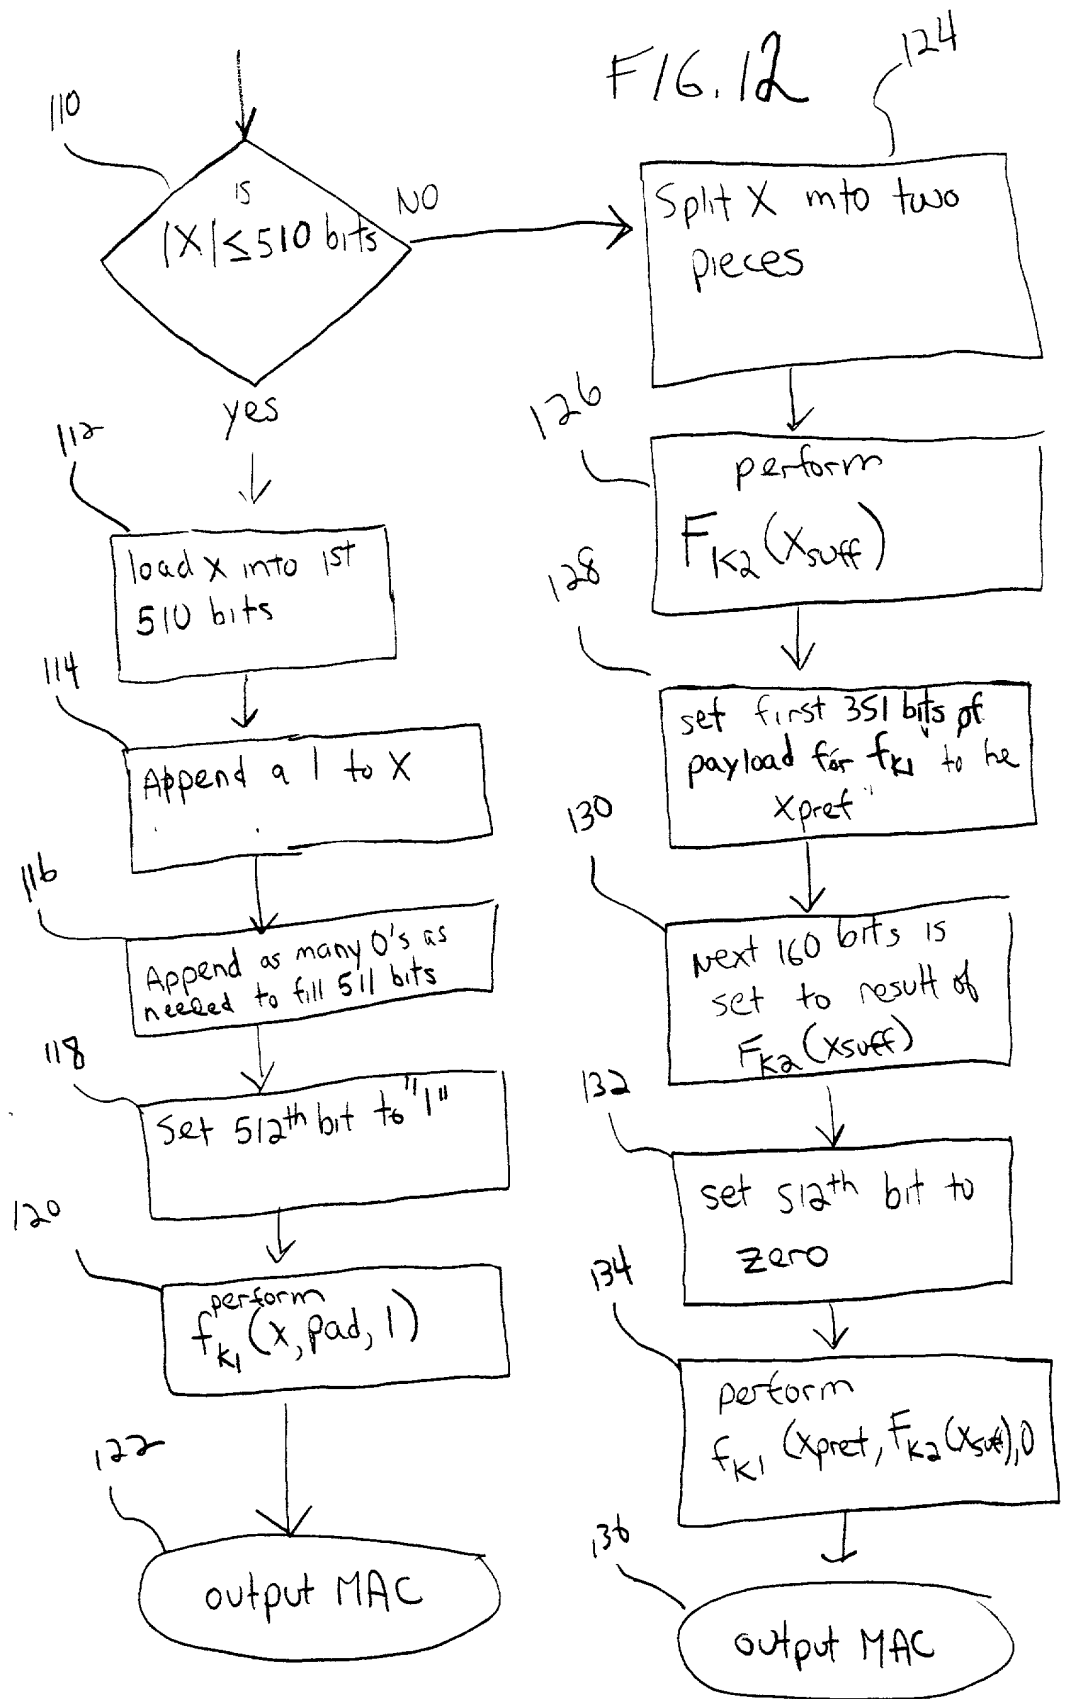 FIG. 12
110
is
|X| ≤ 510 bits
NO
yes
112
load X into 1st
510 bits
114
Append a 1 to X
116
Append as many 0's as
needed to fill 511 bits
118
Set 512th bit to "1"
120
perform
fK1 (X, pad, 1)
122
output MAC
124
Split X into two
pieces
126
perform
FK2 (Xsuff)
128
set first 351 bits of
payload for fK1 to be
Xpref
130
Next 160 bits is
set to result of
FK2 (Xsuff)
132
set 512th bit to
zero
134
perform
fK1 (Xpref, FK2(Xsuf),0
136
output MAC